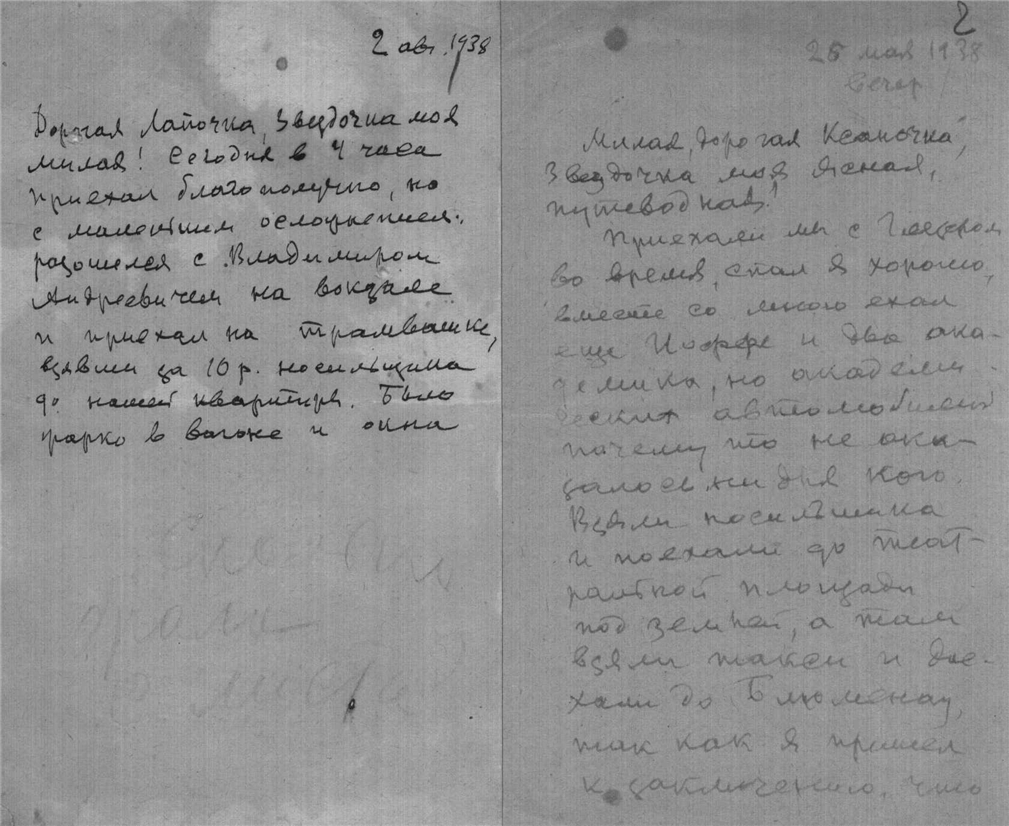 2 авг. 1938
Дорогая Лапочка, Звездочка моя
милая! Сегодня в 4 часа
приехал благополучно, но
с маленьким осложнением:
разошелся с Владимиром
Андреевичем на вокзале
и приехал на трамвайке,
взявши за 10 р. носильщика
до нашей квартиры. Было
жарко в вагоне и окна
2
25 мая 1938
вечер
Милая, дорогая Ксаночка,
Звездочка моя ясная,
путеводная!
Приехали мы с
во время, спал я хорошо,
вместе со мною ехал
еще Иоффе и два ака-
демика, но академи-
ческих автомобилей
почему то не ока-
залось ни для кого.
Взяли носильщика
и поехали до Теат-
ральной площади
под землей, а там
взяли такси и дое-
хали до Блюменау,
так как я пришел
к заключению, что